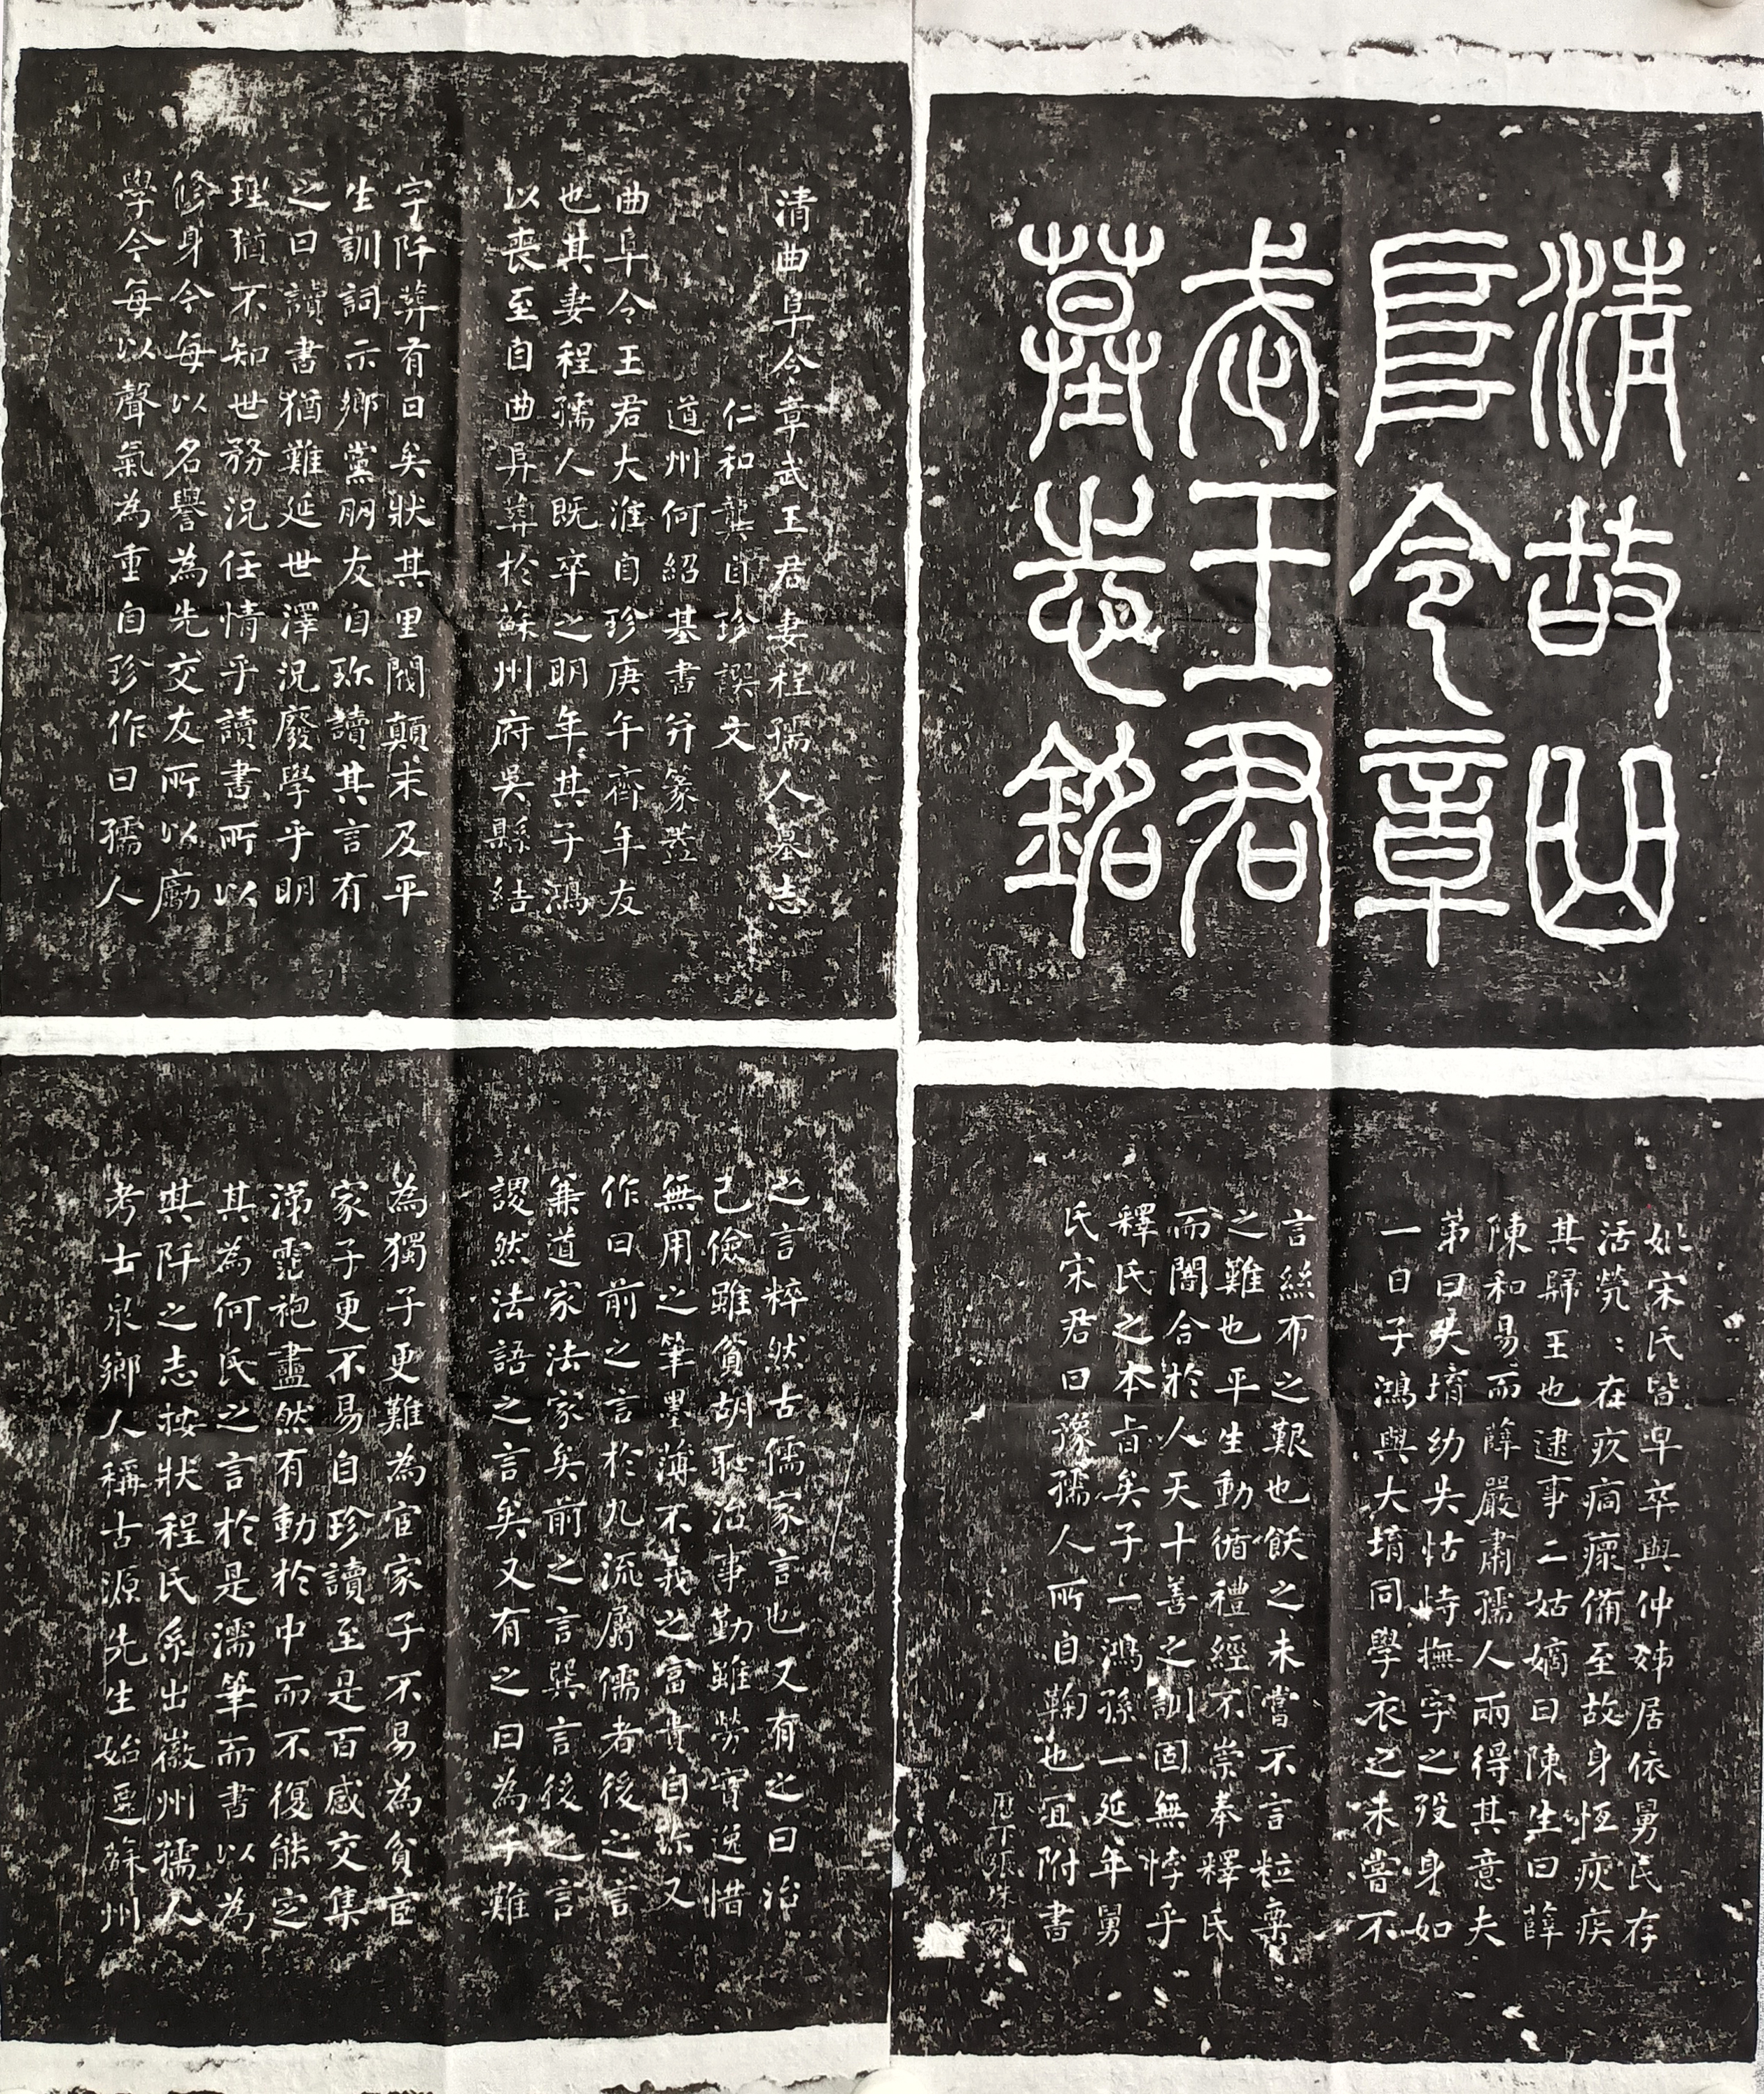 清故曲
阜令章
武王君
墓志銘
清曲阜令章武王君妻程孺人墓志
仁和龔自珍譔文
道州何紹基書并篆葢
曲阜令王君大淮自珍庚午齊年友
也其妻程孺人既卒之明年其子鴻
以喪至自曲阜葬於蘇州府吳縣結
字阡葬有日矣狀其里閥顛末及平
生訓詞示鄉黨朋友自珍讀其言有
之曰讀書猶難延世澤況廢學乎明
理猶不知世務況任情乎讀書所以
修身今每以名譽為先交友所以勵
學今每以聲氣為重自珍作曰孺人
之言粹然古儒家言也又有之曰治
己儉雖貧胡恥治事勤雖勞實逸惜
無用之筆墨薄不義之富貴自珍又
作曰前之言於九流屬儒者後之言
兼道家法家矣前之言巽言後之言
謖然法語之言矣又有之曰為子難
為獨子更難為宦家子不易為貧宦
家子更不易自珍讀至是百感交集
涕霑袍盡然有動於中而不復能定
其為何氏之言於是濡筆而書以為
其阡之志按狀程氏系出徽州孺人
考士泉鄉人稱古源先生始遷蘇州
妣宋氏皆早卒與仲姊居依舅氏存
活煢〻在疚痌瘝備至故身恆疢疾
其歸王也逮事二姑嫡曰陳生曰薛
陳和易而薛嚴肅孺人兩得其意夫
弟曰大堉幼失怙恃撫字之歿身如
一日子鴻與大堉同學衣之未嘗不
言絲布之艱也飫之未嘗不言粒粟
之難也平生動循禮經不崇奉釋氏
而闇合於人天十善之訓固無悖乎
釋氏之本旨矣子一鴻孫一延年舅
氏宋君曰豫孺人所自鞠也宜附書